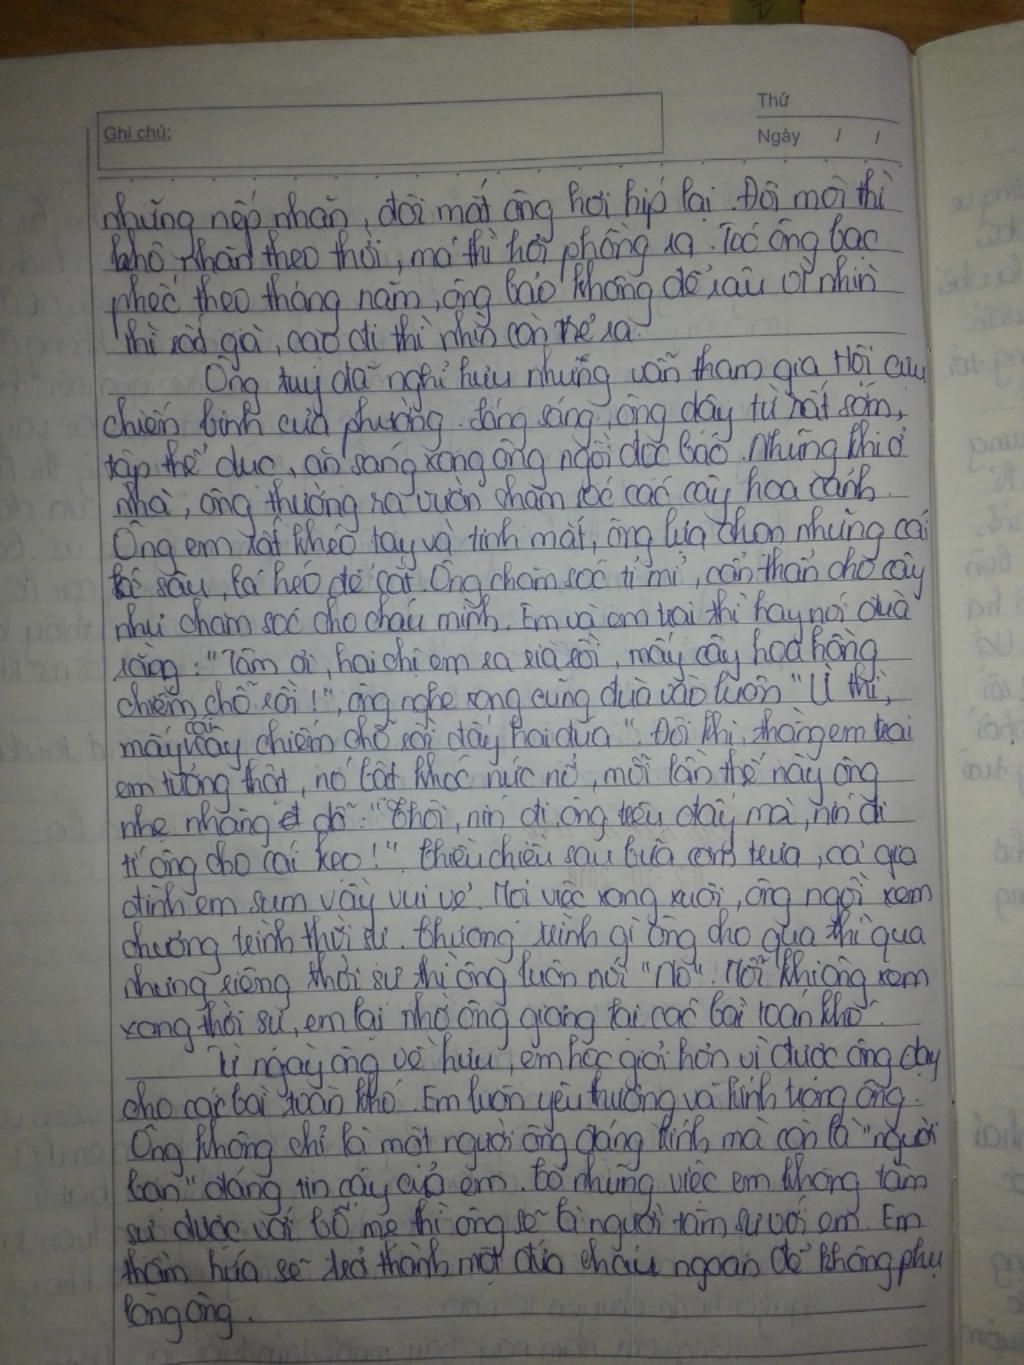 Ghi chú:
Thứ
Ngày / /
những nếp nhăn, đôi mắt ông hơi híp lại. Đôi môi thì
khô nhăn theo thời, má thì hơi phồng ra. Tóc ông bạc
phếc theo tháng năm, ông bảo không để râu vì nhìn
thì rất già, cạo đi thì nhìn còn trẻ ra.
Ông tuy đã nghỉ hưu nhưng vẫn tham gia Hội cựu
chiến binh của phường. Sáng sáng, ông dậy từ rất sớm,
tập thể dục, ăn sáng xong ông ngồi đọc báo. Những khi ở
nhà, ông thường ra vườn chăm sóc các cây hoa cảnh.
Ông em rất khéo tay và tinh mắt, ông lựa chọn những cái
lá sâu, lá héo để cắt. Ông chăm sóc tỉ mỉ, cẩn thận cho cây
như chăm sóc cho cháu mình. Em và em trai thì hay nói đùa
rằng: "Tâm ơi, hai chị em ra rìa rồi, mấy cây hoa hồng
chiếm chỗ rồi!", ông nghe xong cũng đùa vào luôn "Ừ thì,
mấy cái cây chiếm chỗ rồi đấy hai đứa". Đôi khi, thằng em trai
em tưởng thật, nó bật khóc nức nở, mỗi lần thế này ông
nhẹ nhàng dỗ: "Thôi, nín đi ông trêu đấy mà, nín đi
tí ông cho cái kẹo!" Chiều chiều sau bữa cơm trưa, cả gia
đình em sum vầy vui vẻ. Mọi việc xong xuôi, ông ngồi xem
chương trình thời sự. Chương trình gì ông cho qua thì qua
nhưng riêng thời sự thì ông luôn nói "No". Mỗi khi ông xem
xong thời sự, em lại nhờ ông giảng lại các bài toán khó.
Từ ngày ông về hưu, em học giỏi hơn vì được ông dạy
cho các bài toán khó. Em luôn yêu thương và kính trọng ông.
Ông không chỉ là một người ông đáng kính mà còn là "người
bạn" đáng tin cậy của em. Có những việc em không tâm
sự được với bố mẹ thì ông sẽ là người tâm sự với em. Em
thầm hứa sẽ trở thành một đứa cháu ngoan để không phụ
lòng ông.